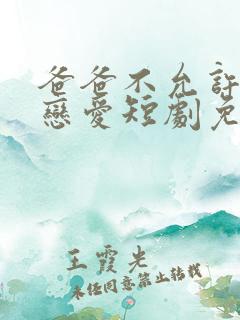 爸爸不允許
戀愛短劇免
王霞先
未任同意禁止转载